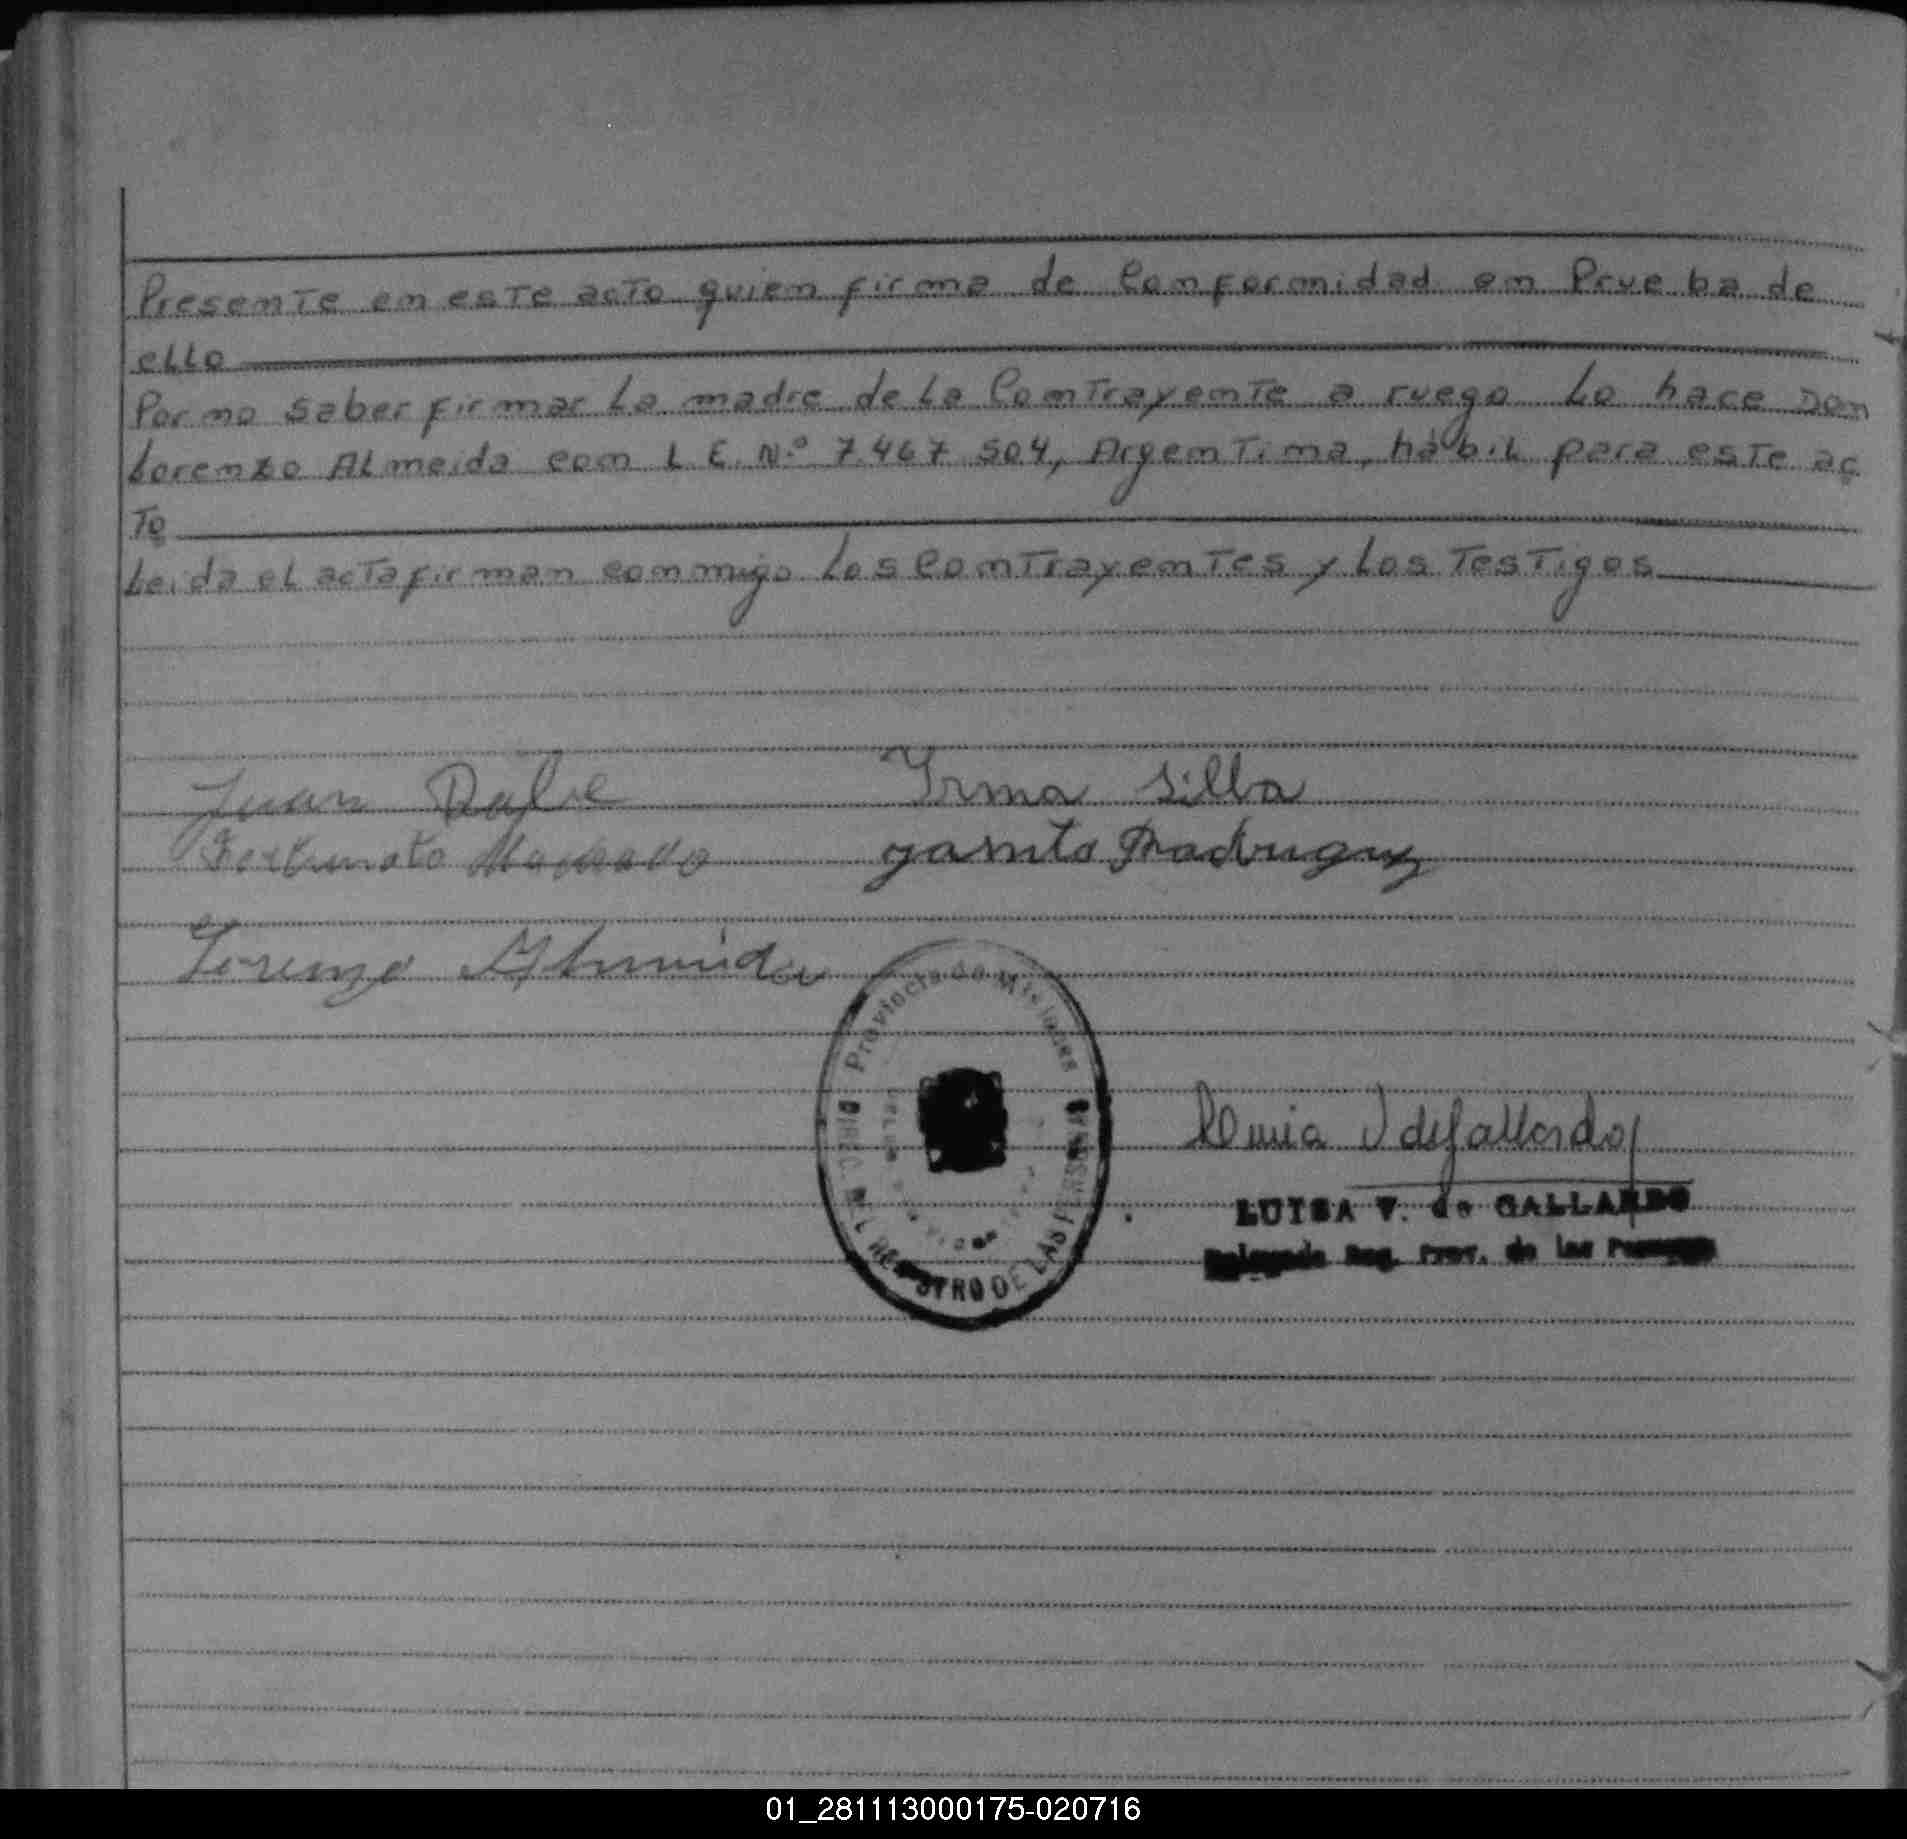 Presente en este acto quien firma de Conformidad en Prueba de
ello
Por no saber firmar la madre de la Contrayente a ruego lo hace Don
Lorenzo Almeida con L E. N.º 7.467 504, Argentina, hábil para este ac
to
Leida el acta firman conmigo los Contrayentes y los Testigos
Juan
Irma Silba
Fortunato Machado
Lorenzo Almeida
Provincia de Misiones
DIREC. DEL REGISTRO DE LAS PERSONAS
V de Gallardo
LUISA V. de GALLARDO
Delegada Reg. Prov. de las Personas
01_281113000175-020716